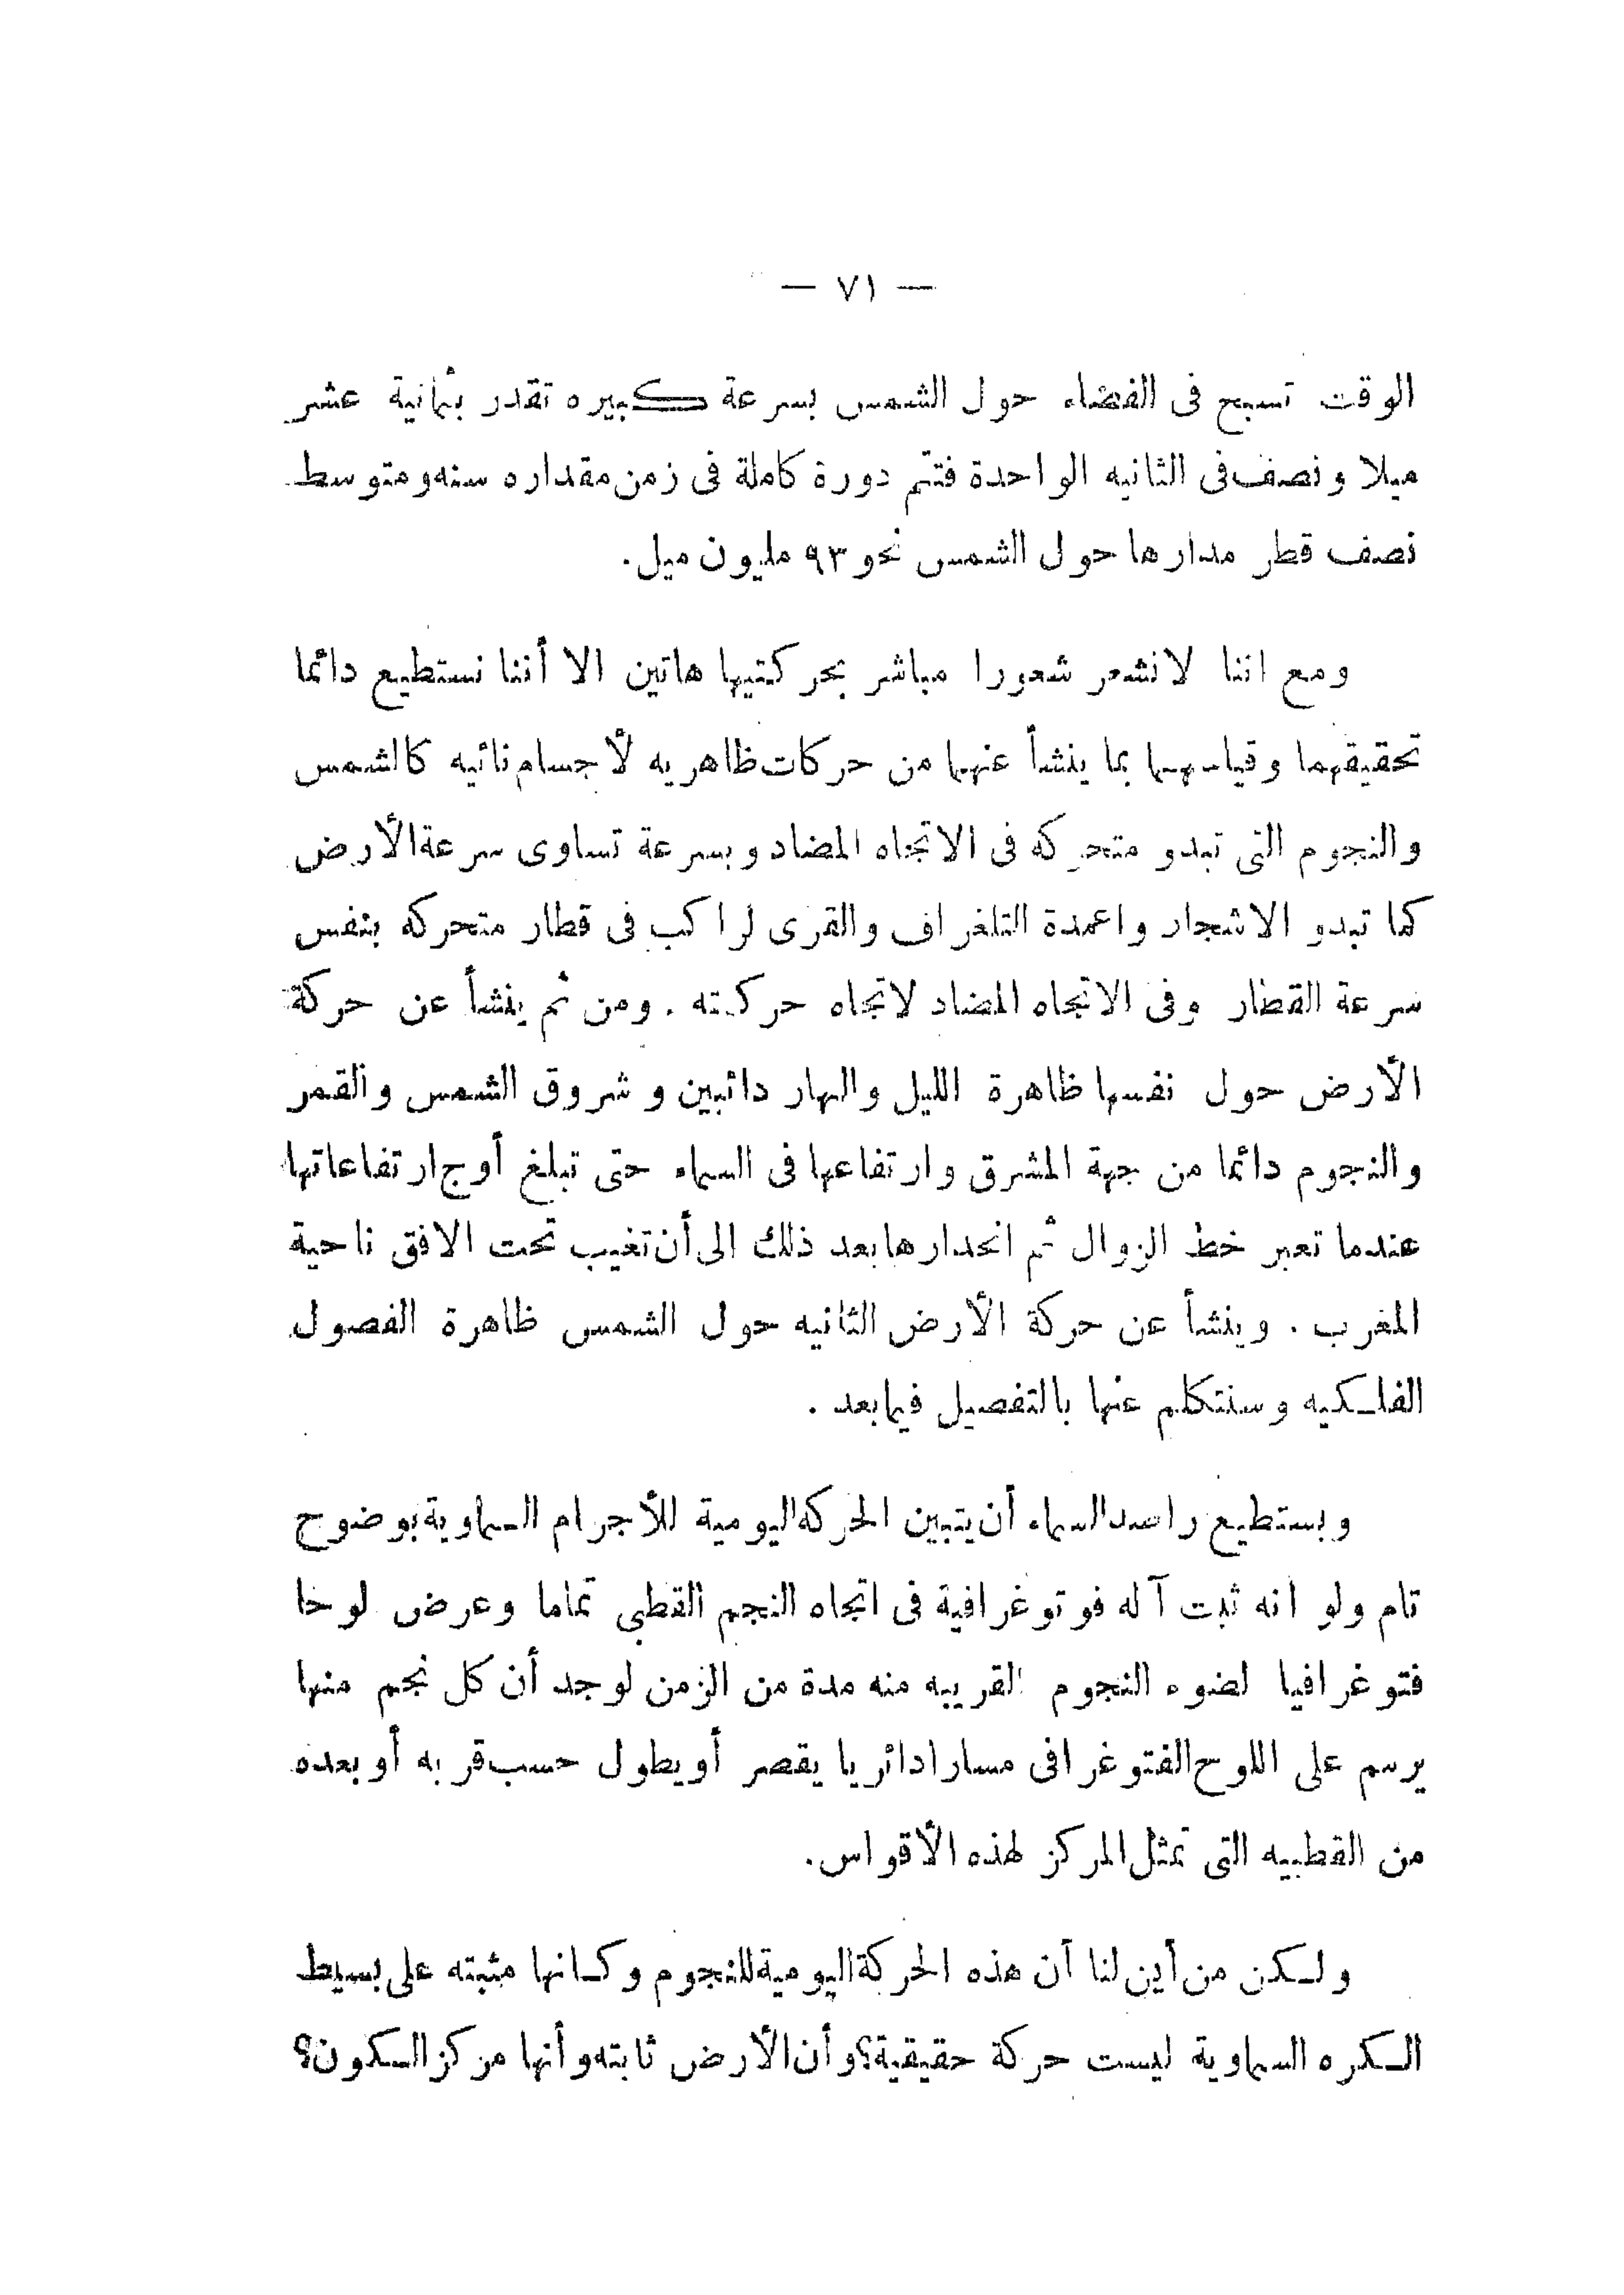 — ٧١ —
الوقت تسبح فى الفضاء حول الشمس بسرعة كبيره تقدر بثمانية عشر
ميلا ونصف فى الثانيه الواحدة فتتم دورة كاملة فى زمن مقداره سنه ومتوسط
نصف قطر مدارها حول الشمس نحو ٩٣ مليون ميل.
ومع اننا لانشعر شعورا مباشر بحركتيها هاتين الا أننا نستطيع دائما
تحقيقهما وقياسهما بما ينشأ عنهما من حركات ظاهريه لأجسام نائيه كالشمس
والنجوم التى تبدو متحركه فى الاتجاه المضاد وبسرعة تساوى سرعة الأرض
كما تبدو الاشجار واعمدة التلغراف والقرى لراكب فى قطار متحركه بنفس
سرعة القطار وفى الاتجاه المضاد لاتجاه حركته . ومن ثم ينشأ عن حركة
الأرض حول نفسها ظاهرة الليل والنهار دائبين وشروق الشمس والقمر
والنجوم دائما من جهة المشرق وارتفاعها فى السماء حتى تبلغ أوج ارتفاعاتها
عندما تعبر خط الزوال ثم انحدارها بعد ذلك الى أن تغيب تحت الافق ناحية
المغرب . وينشأ عن حركة الأرض الثانيه حول الشمس ظاهرة الفصول
الفلكيه وسنتكلم عنها بالتفصيل فيما بعد .
ويستطيع راصد السماء أن يتبين الحركه اليومية للأجرام السماوية بوضوح
تام ولو انه ثبت آله فوتوغرافية فى اتجاه النجم القطبى تماما وعرض لوحا
فتوغرافيا لضوء النجوم القريبه منه مدة من الزمن لوجد أن كل نجم منها
يرسم على اللوح الفتوغرافى مسارا دائريا يقصر أو يطول حسب قربه أو بعده
من القطبيه التى تمثل المركز لهذه الأقواس.
ولكن من أين لنا أن هذه الحركة اليومية للنجوم وكانها مثبته على بسيط
الكره السماوية ليست حركة حقيقية؟ وأن الأرض ثابته وأنها مركز السكون؟